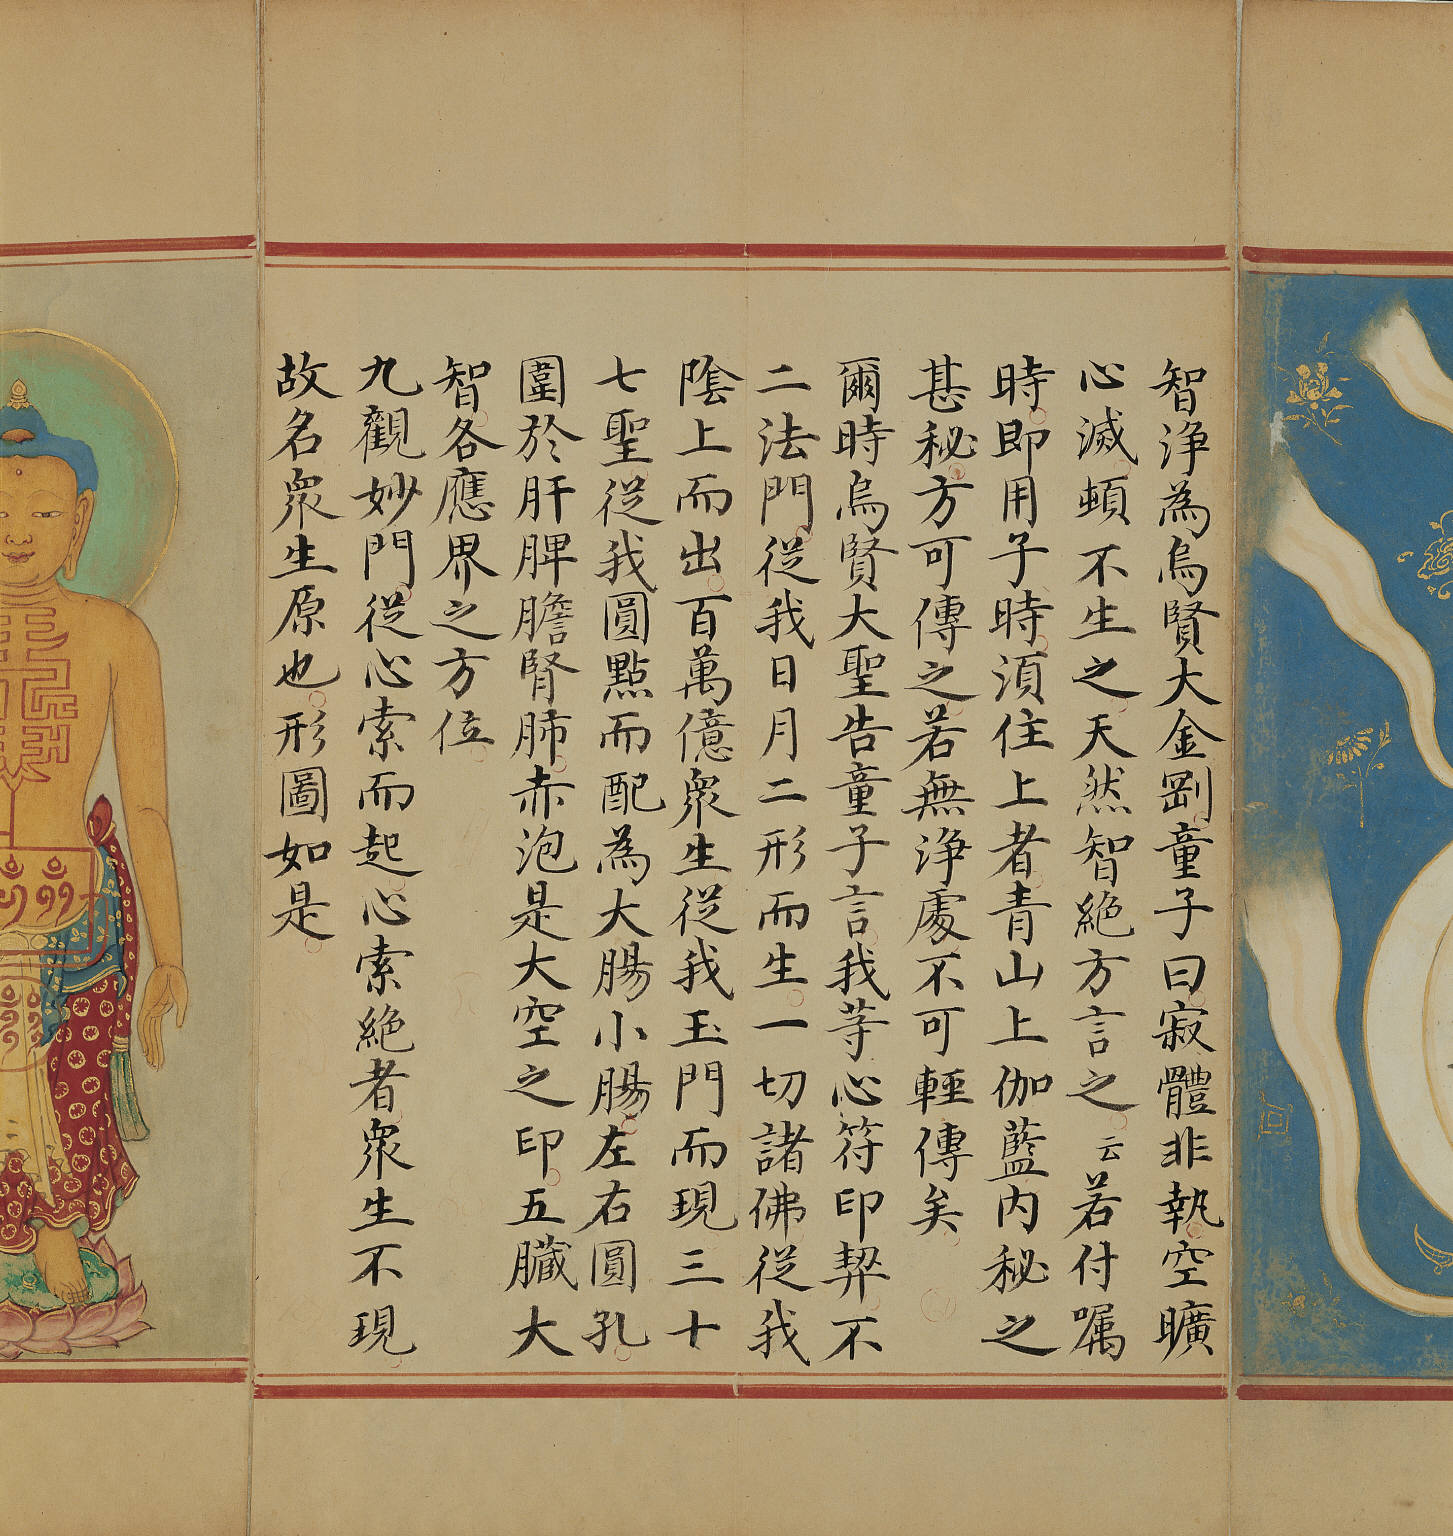 智淨為烏賢大金剛童子曰寂體非執空曠
心滅頓不生之天然智絕方言之云若付囑
時即用子時湏住上者青山上伽藍內秘之
甚秘方可傳之若無淨處不可輕傳矣
爾時烏賢大聖告童子言我等心符印契不
二法門從我日月二形而生一切諸佛從我
陰上而出百萬億衆生從我玉門而現三十
七聖從我圓點而配為大腸小腸左右圓孔
圍於肝脾膽腎肺赤泡是大空之印五臟大
智各應界之方位
九觀妙門從心索而起心索絕者衆生不現
故名衆生原也形圖如是